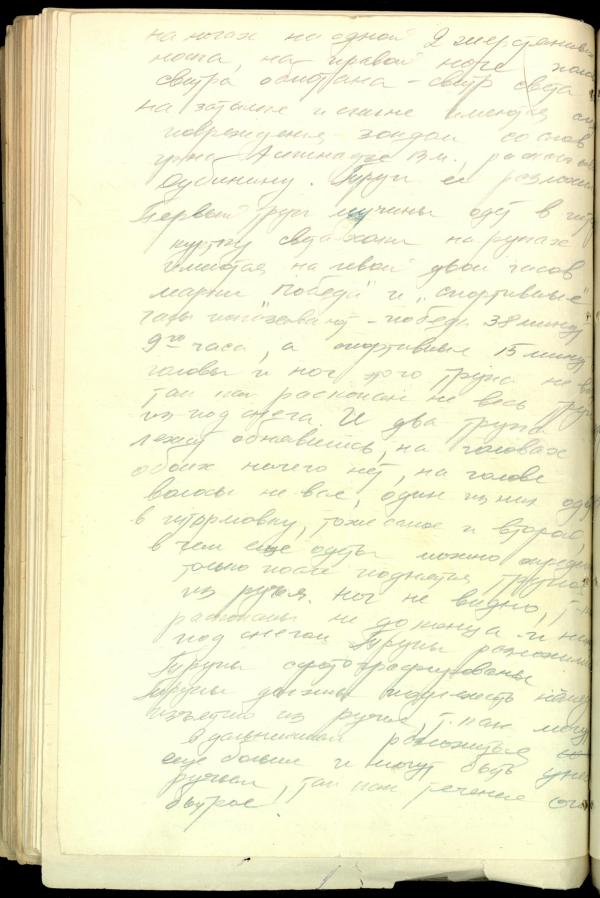 на ногах на одной 2 шерстяных
носка, на правой ноге
свитра обмотана - свитр света
на затылке и спине имеются
повреждения зондом со слов
гр-на Аскинадзе В.м.,
Дубинину. Труп ее разложи
Первый труп мужчины одет в
куртку света хаки на руках
имиются на левой двои часов
марки "победа" и "спортивные"
часы показывают - победа 38 минут
9го часа, а спортивные 15 минут
головы и ног этого трупа не
так как раскопан не весь труп
из под снега. И два трупа
лежат обнявшись, на головах
обоих ничего нет, на голове
волосы не все, один из них одет
в штормовку, тоже самое и второй,
в чем еще одеты можно опреде
только после поднятия трупов
из ручья. Ног не видно, т.к.
раскопаны не до конца и
под снегом. Трупы разложились
Трупы сфотографированы
Трупы должны
изъятию из ручья, т.как могут
в дальнейшем разложиться
еще больше и могут быть
ручьем, так как течение
быстрое.